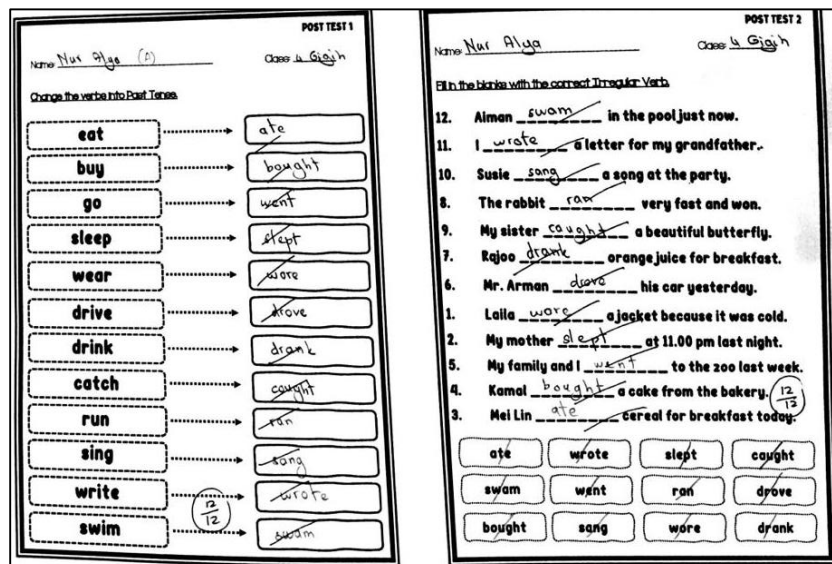 POST TEST 1
Name: Nur Alya (A) Class: 4 Gigih
Change the verbs into Past Tense.
eat ate
buy bought
go went
sleep slept
wear wore
drive drove
drink drank
catch caught
run ran
sing sang
write wrote
swim swam
12/12
POST TEST 2
Name: Nur Alya Class: 4 Gigih
Fill in the blanks with the correct Irregular Verb.
12. Aiman swam in the pool just now.
11. I wrote a letter for my grandfather.
10. Susie sang a song at the party.
8. The rabbit ran very fast and won.
9. My sister caught a beautiful butterfly.
7. Rajoo drank orange juice for breakfast.
6. Mr. Arman drove his car yesterday.
1. Laila wore a jacket because it was cold.
2. My mother slept at 11.00 pm last night.
5. My family and I went to the zoo last week.
4. Kamal bought a cake from the bakery. 12/12
3. Mei Lin ate cereal for breakfast today.
ate wrote slept caught
swam went ran drove
bought sang wore drank